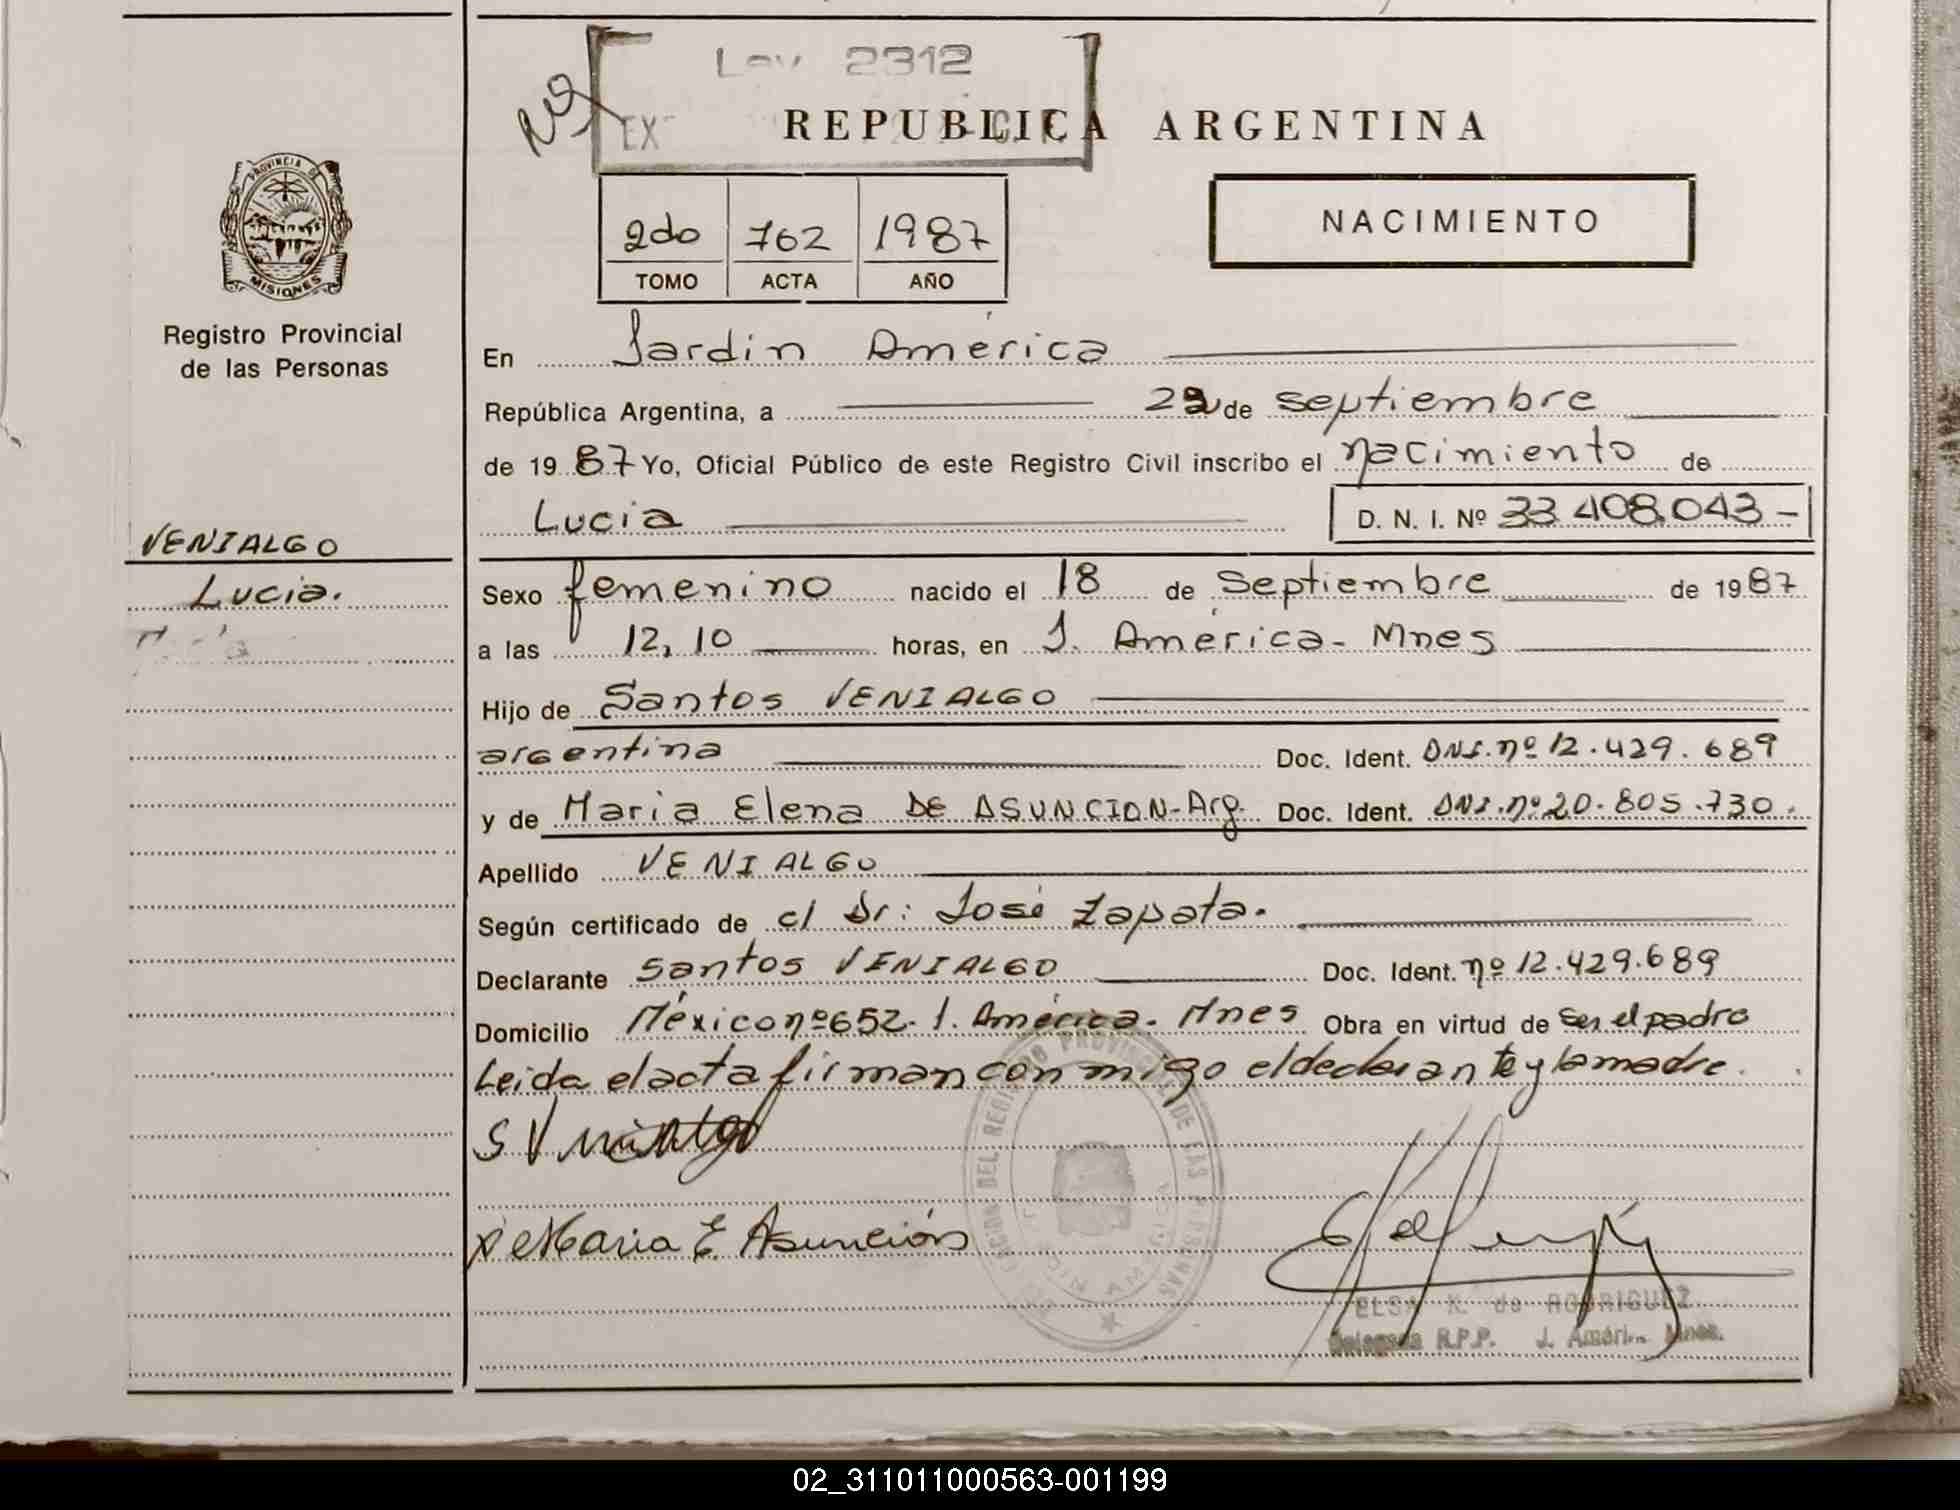 Ley 2312
REPUBLICA ARGENTINA
EX
PROVINCIA DE
MISIONES
Registro Provincial
de las Personas
NACIMIENTO
2do 762 1987
TOMO ACTA AÑO
En Jardin América
República Argentina, a 22 de septiembre
de 19 87 Yo, Oficial Público de este Registro Civil inscribo el nacimiento de
Lucia D. N. I. Nº 33.408.043-
VENIALGO
Lucia.
Sexo femenino nacido el 18 de Septiembre de 1987
a las 12,10 horas, en J. América- Mnes
Hijo de Santos VENIALGO
argentina Doc. Ident. DNI.nº 12.429.689
y de Maria Elena DE ASUNCION-Arg. Doc. Ident. DNI.nº 20.805.730.
Apellido VENIALGO
Según certificado de c/ Dr: José Zapata.
Declarante Santos VENIALGO Doc. Ident. nº 12.429.689
Domicilio México nº 652. J. América. Mnes Obra en virtud de ser el padre
Leida el acta firman conmigo el declarante y la madre.
S Venialgo
Maria E Asunción
ELSA K. de RODRIGUEZ
Delegada R.P.P. J. América Mnes.
02_311011000563-001199